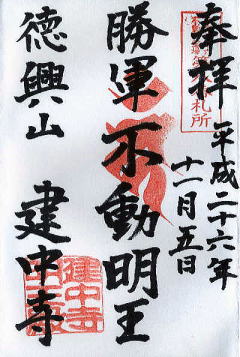 奉拝
平成二十六年
十一月五日
勝軍不動明王
徳興山
建中寺
札所